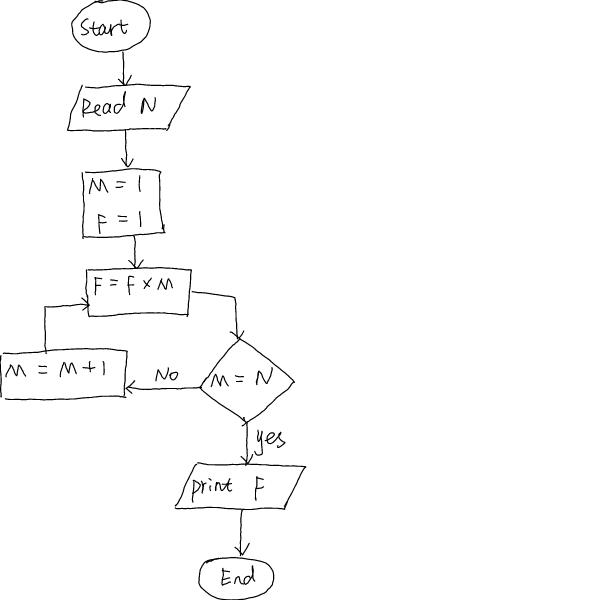 Start
Read N
M = 1
F = 1
F = F × M
M = M + 1
No
M = N
yes
print F
End